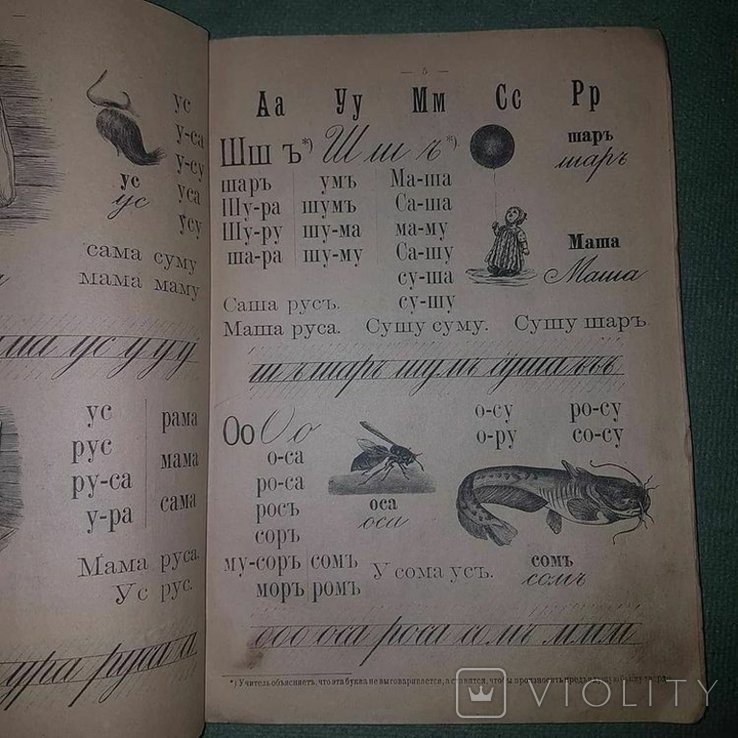 ус
у-са
у-су
уса
усу
ус
ус
сама суму
мама маму
ма ус у у у
ус рама
рус мама
ру-са
у-ра сама
Мама руса.
Ус рус.
ура руса а
— 5 —
Аа Уу Мм Сс Рр
Шш ъ*) Шш ъ*)
шаръ
шаръ
шаръ умъ Ма-ша
Шу-ра шумъ Са-ша
Шу-ру шу-ма ма-му
ша-ра шу-му Са-шу
су-ша
су-шу
Маша
Маша
Саша русъ.
Маша руса. Сушу суму. Сушу шаръ.
ш ъ шаръ шумъ суша ъ ъ ъ
Оо Оо
о-су ро-су
о-ру со-су
о-са
ро-са
росъ
соръ
му-соръ сомъ
моръ ромъ
оса
оса
У сома усъ.
сомъ
сомъ
ооо оса роса сомъ м м м
*) Учитель объясняетъ, что эта буква не выговаривается, а ставится, чтобы произносить предъидущую букву твердо.
VIOLITY